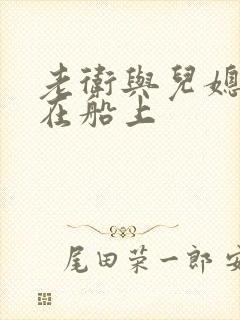 老衛與兒媳
在船上
尾田栄一郎 安